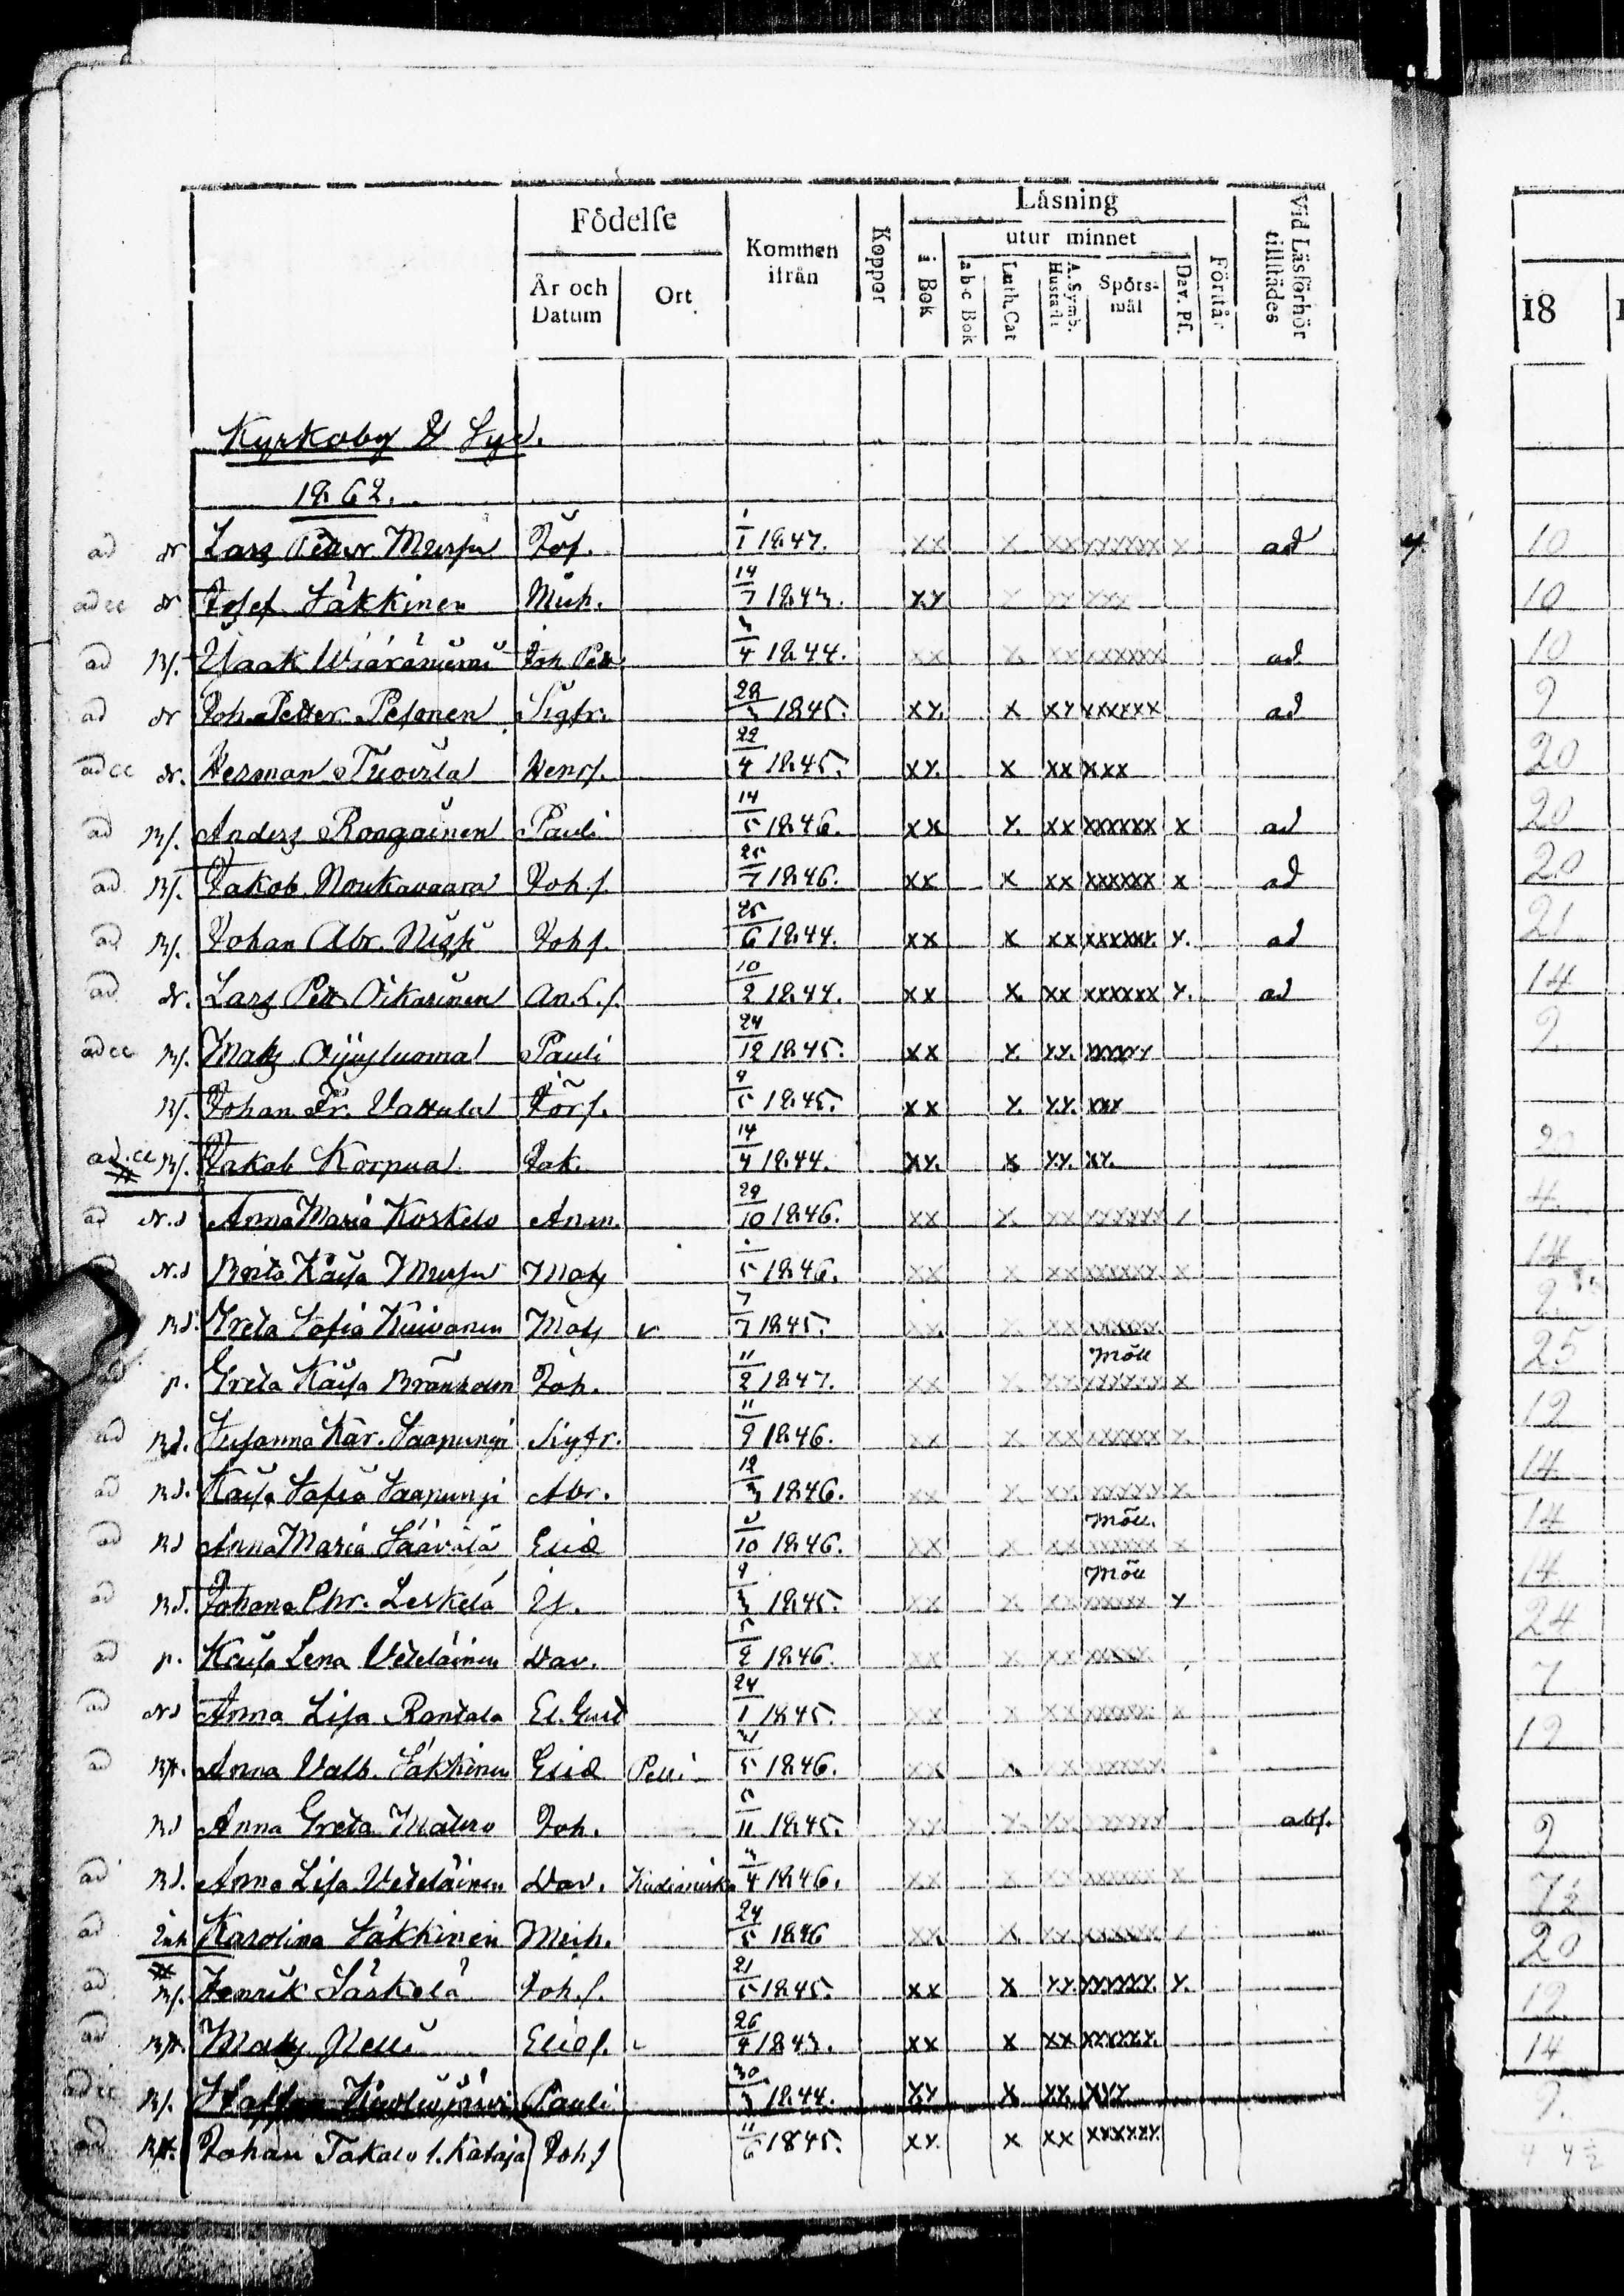 Födelse
Kommen ifrån
Koppor
Läsning
utur minnet
i Bok
a b c Bok
Luth. Cat
A. Symb. Hustafl
Spörs-mål
Dav. Ps.
Förstår
Vid Läsförhör tillstädes
År och Datum
Ort
18
Kyrkoby & Syd.
1862.
ad dr Lars Petter Mursu Jos. 1/1 1847. xx x xx xxxxxx x ad 10
ad cc dr Josef Säkkinen Mich. 14/7 1843. xx x xx xxx 10
ad Bs. Isaak Wääräniemi Joh Pett. 3/4 1844. xx x xx xxxxxx ad 10
ad dr Joh. Petter Pesonen Sigfr. 28/3 1845. xx x xx xxxxxx ad 9
ad cc dr. Herman Tuovila Henr s. 22/4 1845. xx x xx xxx 20
ad Bs. Anders Rongainen Pauli 14/5 1846. xx x xx xxxxxx x ad 20
ad Bs. Jakob Noukavaara Joh. s. 25/7 1846. xx x xx xxxxxx x ad 20
ad Bs. Johan Abr. Niski Joh s. 25/6 1844. xx x xx xxxxxx x ad 21
ad dr. Lars Pett. Oikarinen An. L. s. 10/2 1844. xx x xx xxxxxx x ad 14
ad cc Bs. Mats Pauli 24/12 1845. xx x xx xxxxx 9
Bs. Johan Fr. Vattula Jör s. 9/5 1845. xx x xx xxx
ad. cc Bs. Jakob Korpua Jak. 14/4 1844. xx x xx xx. 20
ad N.d Anna Maria Koskelo Anan. 29/10 1846. xx x xx xxxxxx x 4
N.d Brita Kaisa Mursu Mats 5 1846. xx x xx xxxxxx x 14
Bd. Greta Sofia Kuivanen Mats v 7/7 1845. xx x xx xxxxx
p. Greta Kaisa Brännholm Joh. 11/2 1847. xx x xx xxxxxx x 25
ad Bd. Susanna Kar. Saapunki Sigfr. 11/9 1846. xx x xx xxxxxx x 19
ad Bd. Kaisa Sofia Saapunki Abr. 12/3 1846. xx x xx xxxxx x 14
ad Bd Anna Maria Säävälä Elid 10 1846. xx x xx xxxxxx x 14
ad Bd. Johana Chr. Leskelä Is. 9/3 1845. xx x xx xxxxx x 14
24
ad p. Kaisa Lena Veteläinen Dav. 5/2 1846. xx x xx xxxxx 7
ad Nd Anna Lisa Rantala El. Gust 24/1 1845. xx x xx xxxxx x 19
ad Anna Valb. Säkkinen Elid Pelli 5 1846. xx x xx xxxxxx
Bd Anna Greta Matero Joh. 11 1845. xx x xx xxxxx abs. 2
ad Bd. Anna Lisa Veteläinen Dav. 3/4 1846. xx x xx xxxxxx x 7½
ad Inh Karolina Säkkinen Mich. 24/5 1846 xx x xx xxxxxx 20
ad Bs. Henrik Särkelä Joh. s. 21/5 1845. xx x xx xxxxxx x 19
ad Mats Nelli Elid s. 26/4 1843. xx x xx xxxxx. 14
ad cc Bs. Staffan Pauli 30/3 1844. xx x xx xxx 9.
ad Johan Takalo l. Kataja Joh s 11/6 1845. xx x xx xxxxxx